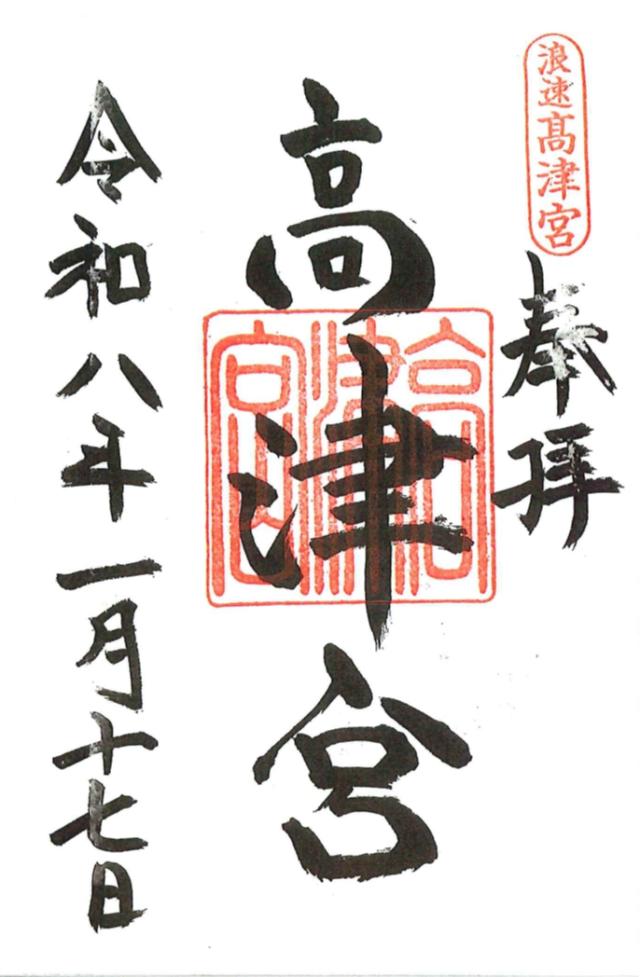 浪速高津宮
奉拝
高津宮
高津宮
令和八年一月十七日